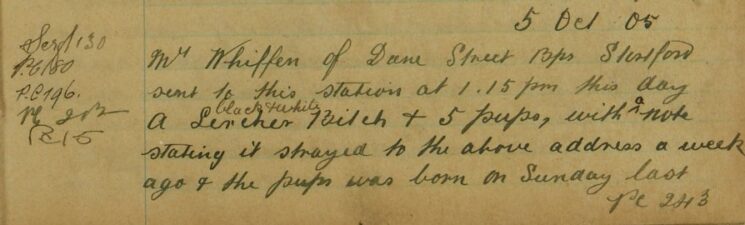 5 Oct 05
Sergt 130
P.C 180
P.C 196.
Pc
Pc 15
Mr Whiffen of Dane Street Bps Stortford
sent to this station at 1.15 pm this day
black & white
A Lercher Bitch & 5 pups, with a note
stating it strayed to the above address a week
ago & the pups was born on Sunday last
Pc 243